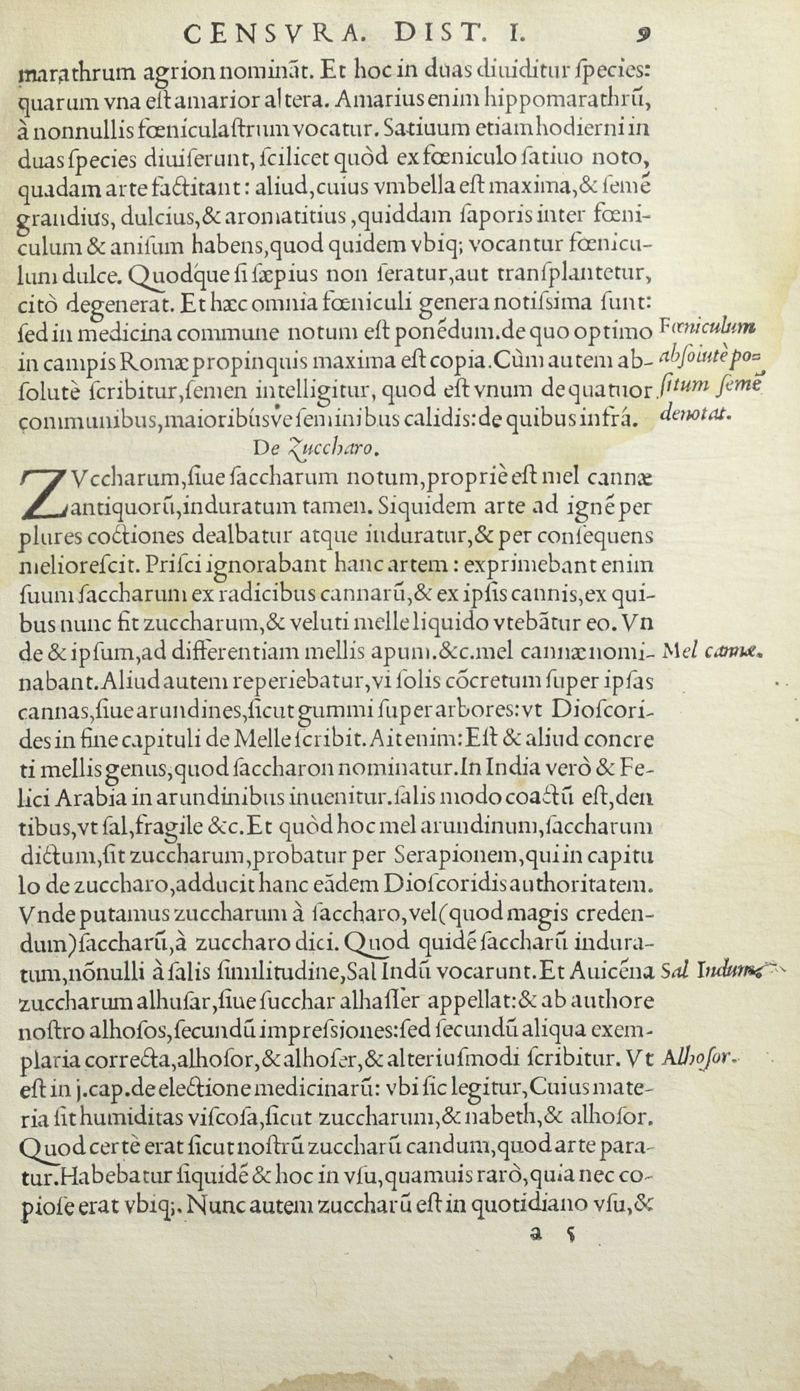 CENSVRA. DIST. I. 9
marathrum agrion nominãt. Et hoc in duas diuiditur ſpecies:
quarum vna eſt amarior altera. Amarius enim hippomarathrũ,
à nonnullis fœniculaſtrum vocatur. Satiuum etiam hodierni in
duas ſpecies diuiſerunt, ſcilicet quòd ex fœniculo ſatiuo noto,
quadam arte factitant: aliud, cuius vmbella eſt maxima, & ſemẽ
grandius, dulcius, & aromatitius, quiddam ſaporis inter fœni-
culum & aniſum habens, quod quidem vbiq; vocantur fœnicu-
lum dulce. Quodque ſi ſæpius non ſeratur, aut tranſplantetur,
citò degenerat. Et hæc omnia fœniculi genera notiſsima ſunt:
ſed in medicina commune notum eſt ponẽdum. de quo optimo Fœniculum
in campis Romæ propinquis maxima eſt copia. Cùm autem ab- abſolutè po=
ſolutè ſcribitur, ſemen intelligitur, quod eſt vnum de quatuor ſitum ſemẽ
communibus, maioribúsve ſeminibus calidis: de quibus infrá. denotat.
De Zuccharo.
ZVccharum, ſiue ſaccharum notum, propriè eſt mel cannæ
antiquorũ, induratum tamen. Siquidem arte ad ignẽ per
plures coctiones dealbatur atque induratur, & per conſequens
melioreſcit. Priſci ignorabant hanc artem: exprimebant enim
ſuum ſaccharum ex radicibus cannarũ, & ex ipſis cannis, ex qui-
bus nunc fit zuccharum, & veluti melle liquido vtebãtur eo. Vn
de & ipſum, ad differentiam mellis apum. &c. mel cannæ nomi- Mel cannæ.
nabant. Aliud autem reperiebatur, vi ſolis cõcretum ſuper ipſas
cannas, ſiue arundines, ſicut gummi ſuper arbores: vt Dioſcori-
des in fine capituli de Melle ſcribit. Ait enim: Eſt & aliud concre
ti mellis genus, quod ſaccharon nominatur. In India verò & Fe-
lici Arabia in arundinibus inuenitur. ſalis modo coactũ eſt, den
tibus, vt ſal, fragile &c. Et quòd hoc mel arundinum, ſaccharum
dictum, ſit zuccharum, probatur per Serapionem, qui in capitu
lo de zuccharo, adducit hanc eãdem Dioſcoridis authoritatem.
Vnde putamus zuccharum à ſaccharo, vel (quod magis creden-
dum) ſaccharũ, à zuccharo dici. Quod quidẽ ſaccharũ indura-
tum, nõnulli à ſalis ſimilitudine, Sal Indũ vocarunt. Et Auicẽna Sal Indum
zuccharum alhuſar, ſiue ſucchar alhaſſer appellat: & ab authore
noſtro alhoſos, ſecundũ impreſsiones: ſed ſecundũ aliqua exem-
plaria correcta, alhoſor, & alhoſer, & alteriuſmodi ſcribitur. Vt Alhoſor.
eſt in j. cap. de electione medicinarũ: vbi ſic legitur, Cuius mate-
ria ſit humiditas viſcoſa, ſicut zuccharum, & nabeth, & alhoſor.
Quod certè erat ſicut noſtrũ zuccharũ candum, quod arte para-
tur. Habebatur ſiquidẽ & hoc in vſu, quamuis rarò, quia nec co-
pioſe erat vbiq;. Nunc autem zuccharũ eſt in quotidiano vſu, &
a 5